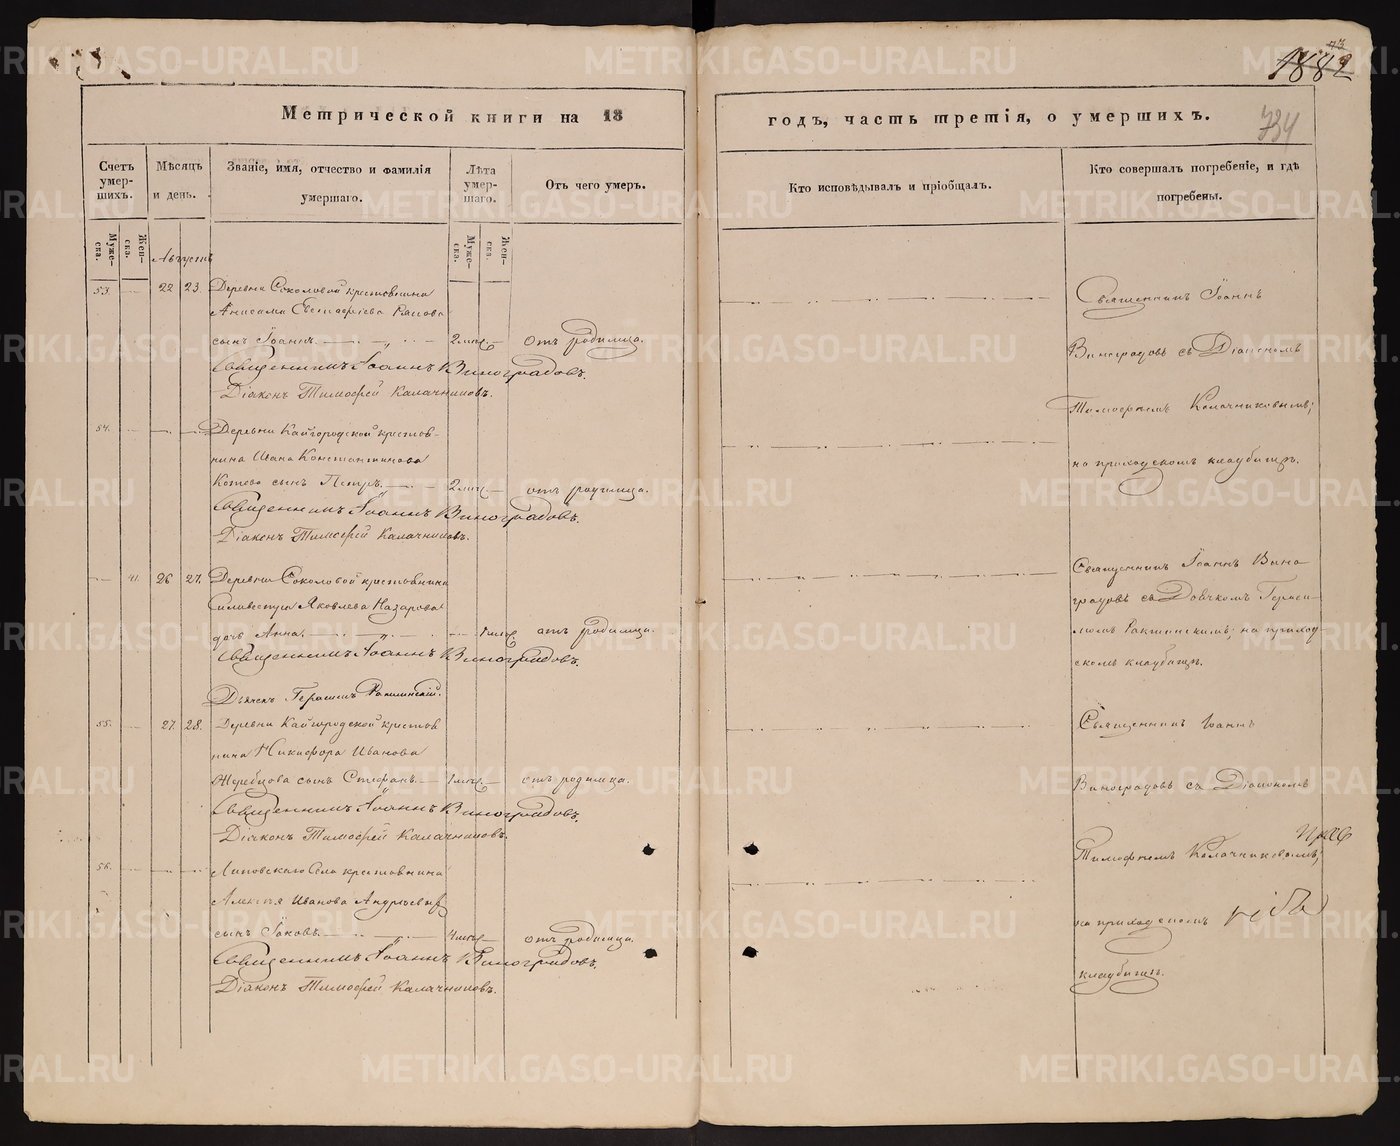 73
1882
734
Метрической книги на 18
годъ, часть третія, о умершихъ.
Счетъ умер-шихъ.
Мѣсяцъ и день.
Званіе, имя, отчество и фамилія умершаго.
Лѣта умер-шаго.
Отъ чего умеръ.
Кто исповѣдывалъ и пріобщалъ.
Кто совершалъ погребеніе, и гдѣ погребены.
Муже-ска.
Жен-ска.
Муже-ска.
Жен-ска.
Августъ
53. 22 23. Деревни Соколовой крестьянина
Анисима Евстафіева
сынъ Іоаннъ. 2 мѣс. отъ родимца.
Священникъ Іоаннъ Виноградовъ.
Діаконъ Тимофей Калачниковъ.
Священникъ Іоаннъ
Виноградовъ съ Діакономъ
Тимофеемъ Калачниковымъ;
на приходскомъ кладбищѣ.
54. Деревни Кайгородской крестья-
нина Ивана Константинова
Котова сынъ Петръ. 2 мѣс. отъ родимца.
Священникъ Іоаннъ Виноградовъ.
Діаконъ Тимофей Калачниковъ.
41. 26 27. Деревни Соколовой крестьянина
Силивестра Яковлева Назарова
дочь Анна. 1 мѣс. отъ родимца.
Священникъ Іоаннъ Виноградовъ.
Дьячекъ Герасимъ
Священникъ Іоаннъ Вино-
градовъ съ Дьячкомъ Гераси-
момъ на приход-
скомъ кладбищѣ.
55. 27. 28. Деревни Кайгородской крестья
нина Никифора Иванова
Жеребцова сынъ Стефанъ. 1 мѣс. отъ родимца.
Священникъ Іоаннъ Виноградовъ.
Діаконъ Тимофей Калачниковъ.
Священникъ Іоаннъ
Виноградовъ съ Діакономъ
Тимофеемъ Калачниковымъ;
на приходскомъ
кладбищѣ.
56. Липовскаго Села крестьянина
Алексѣя Иванова Андреева
сынъ Іаковъ. 4 мѣс. отъ родимца.
Священникъ Іоаннъ Виноградовъ.
Діаконъ Тимофей Калачниковъ.
METRIKI.GASO-URAL.RU